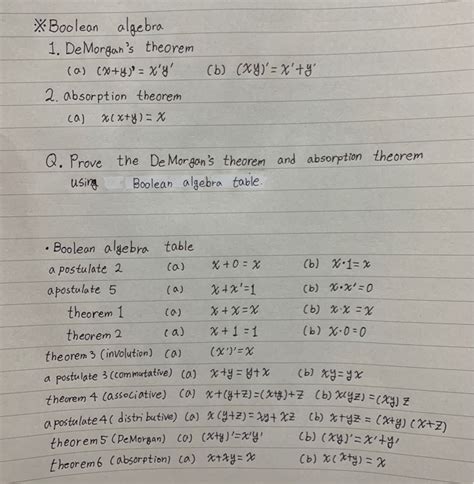 ※Boolean algebra
1. DeMorgan's theorem
(a) (x+y)' = x'y' (b) (xy)' = x'+y'
2. absorption theorem
(a) x(x+y) = x
Q. Prove the DeMorgan's theorem and absorption theorem
using Boolean algebra table.
• Boolean algebra table
a postulate 2 (a) x+0=x (b) x·1=x
a postulate 5 (a) x+x'=1 (b) x·x'=0
theorem 1 (a) x+x=x (b) x·x=x
theorem 2 (a) x+1=1 (b) x·0=0
theorem 3 (involution) (a) (x')'=x
a postulate 3 (commutative) (a) x+y=y+x (b) xy=yx
theorem 4 (associative) (a) x+(y+z)=(x+y)+z (b) x(yz)=(xy)z
a postulate 4 (distributive) (a) x(y+z)=xy+xz (b) x+yz=(x+y)(x+z)
theorem 5 (DeMorgan) (a) (x+y)'=x'y' (b) (xy)'=x'+y'
theorem 6 (absorption) (a) x+xy=x (b) x(x+y)=x